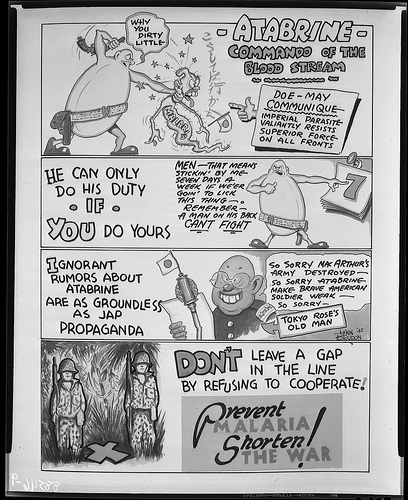 WHY
YOU
DIRTY
LITTLE-
- ATABRINE -
COMMANDO OF THE
BLOOD STREAM
MALARIA
DOE-MAY
COMMUNIQUE—
IMPERIAL PARASITE-
VALIANTLY RESISTS
SUPERIOR FORCE-
ON ALL FRONTS
HE CAN ONLY
DO HIS DUTY
- IF -
YOU DO YOURS
MEN—THAT MEANS
STICKIN' BY ME-
SEVEN DAYS A
WEEK IF WE'ER
GOIN' TO LICK
THIS THING—.
REMEMBER—
A MAN ON HIS BACK
CAN'T FIGHT
7
IGNORANT
RUMORS ABOUT
ATABRINE
ARE AS GROUNDLESS
AS JAP
PROPAGANDA
SO SORRY MAC ARTHUR'S
ARMY DESTROYED—
SO SORRY ATABRINE-
MAKE BRAVE AMERICAN
SOLDIER WEAK —
SO SORRY—
TOKYO ROSE'S
OLD MAN
'45
DON'T LEAVE A GAP
IN THE LINE
BY REFUSING TO COOPERATE!
Prevent
MALARIA
Shorten!
THE WAR